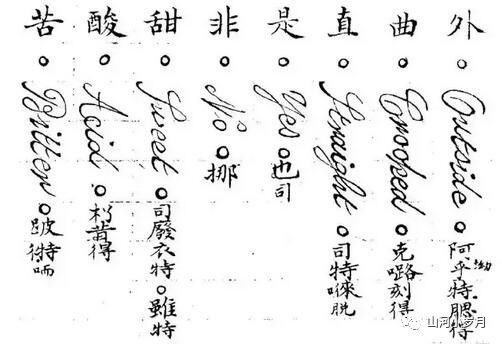 外 Outside 阿乎特腮得
曲 Crooped 克刻得
直 Straight 司特唻脱
是 Yes 也司
非 No 挪
甜 Sweet 司廢衣特 雖特
酸 Acid 昔得
苦 Britten
山河小岁月